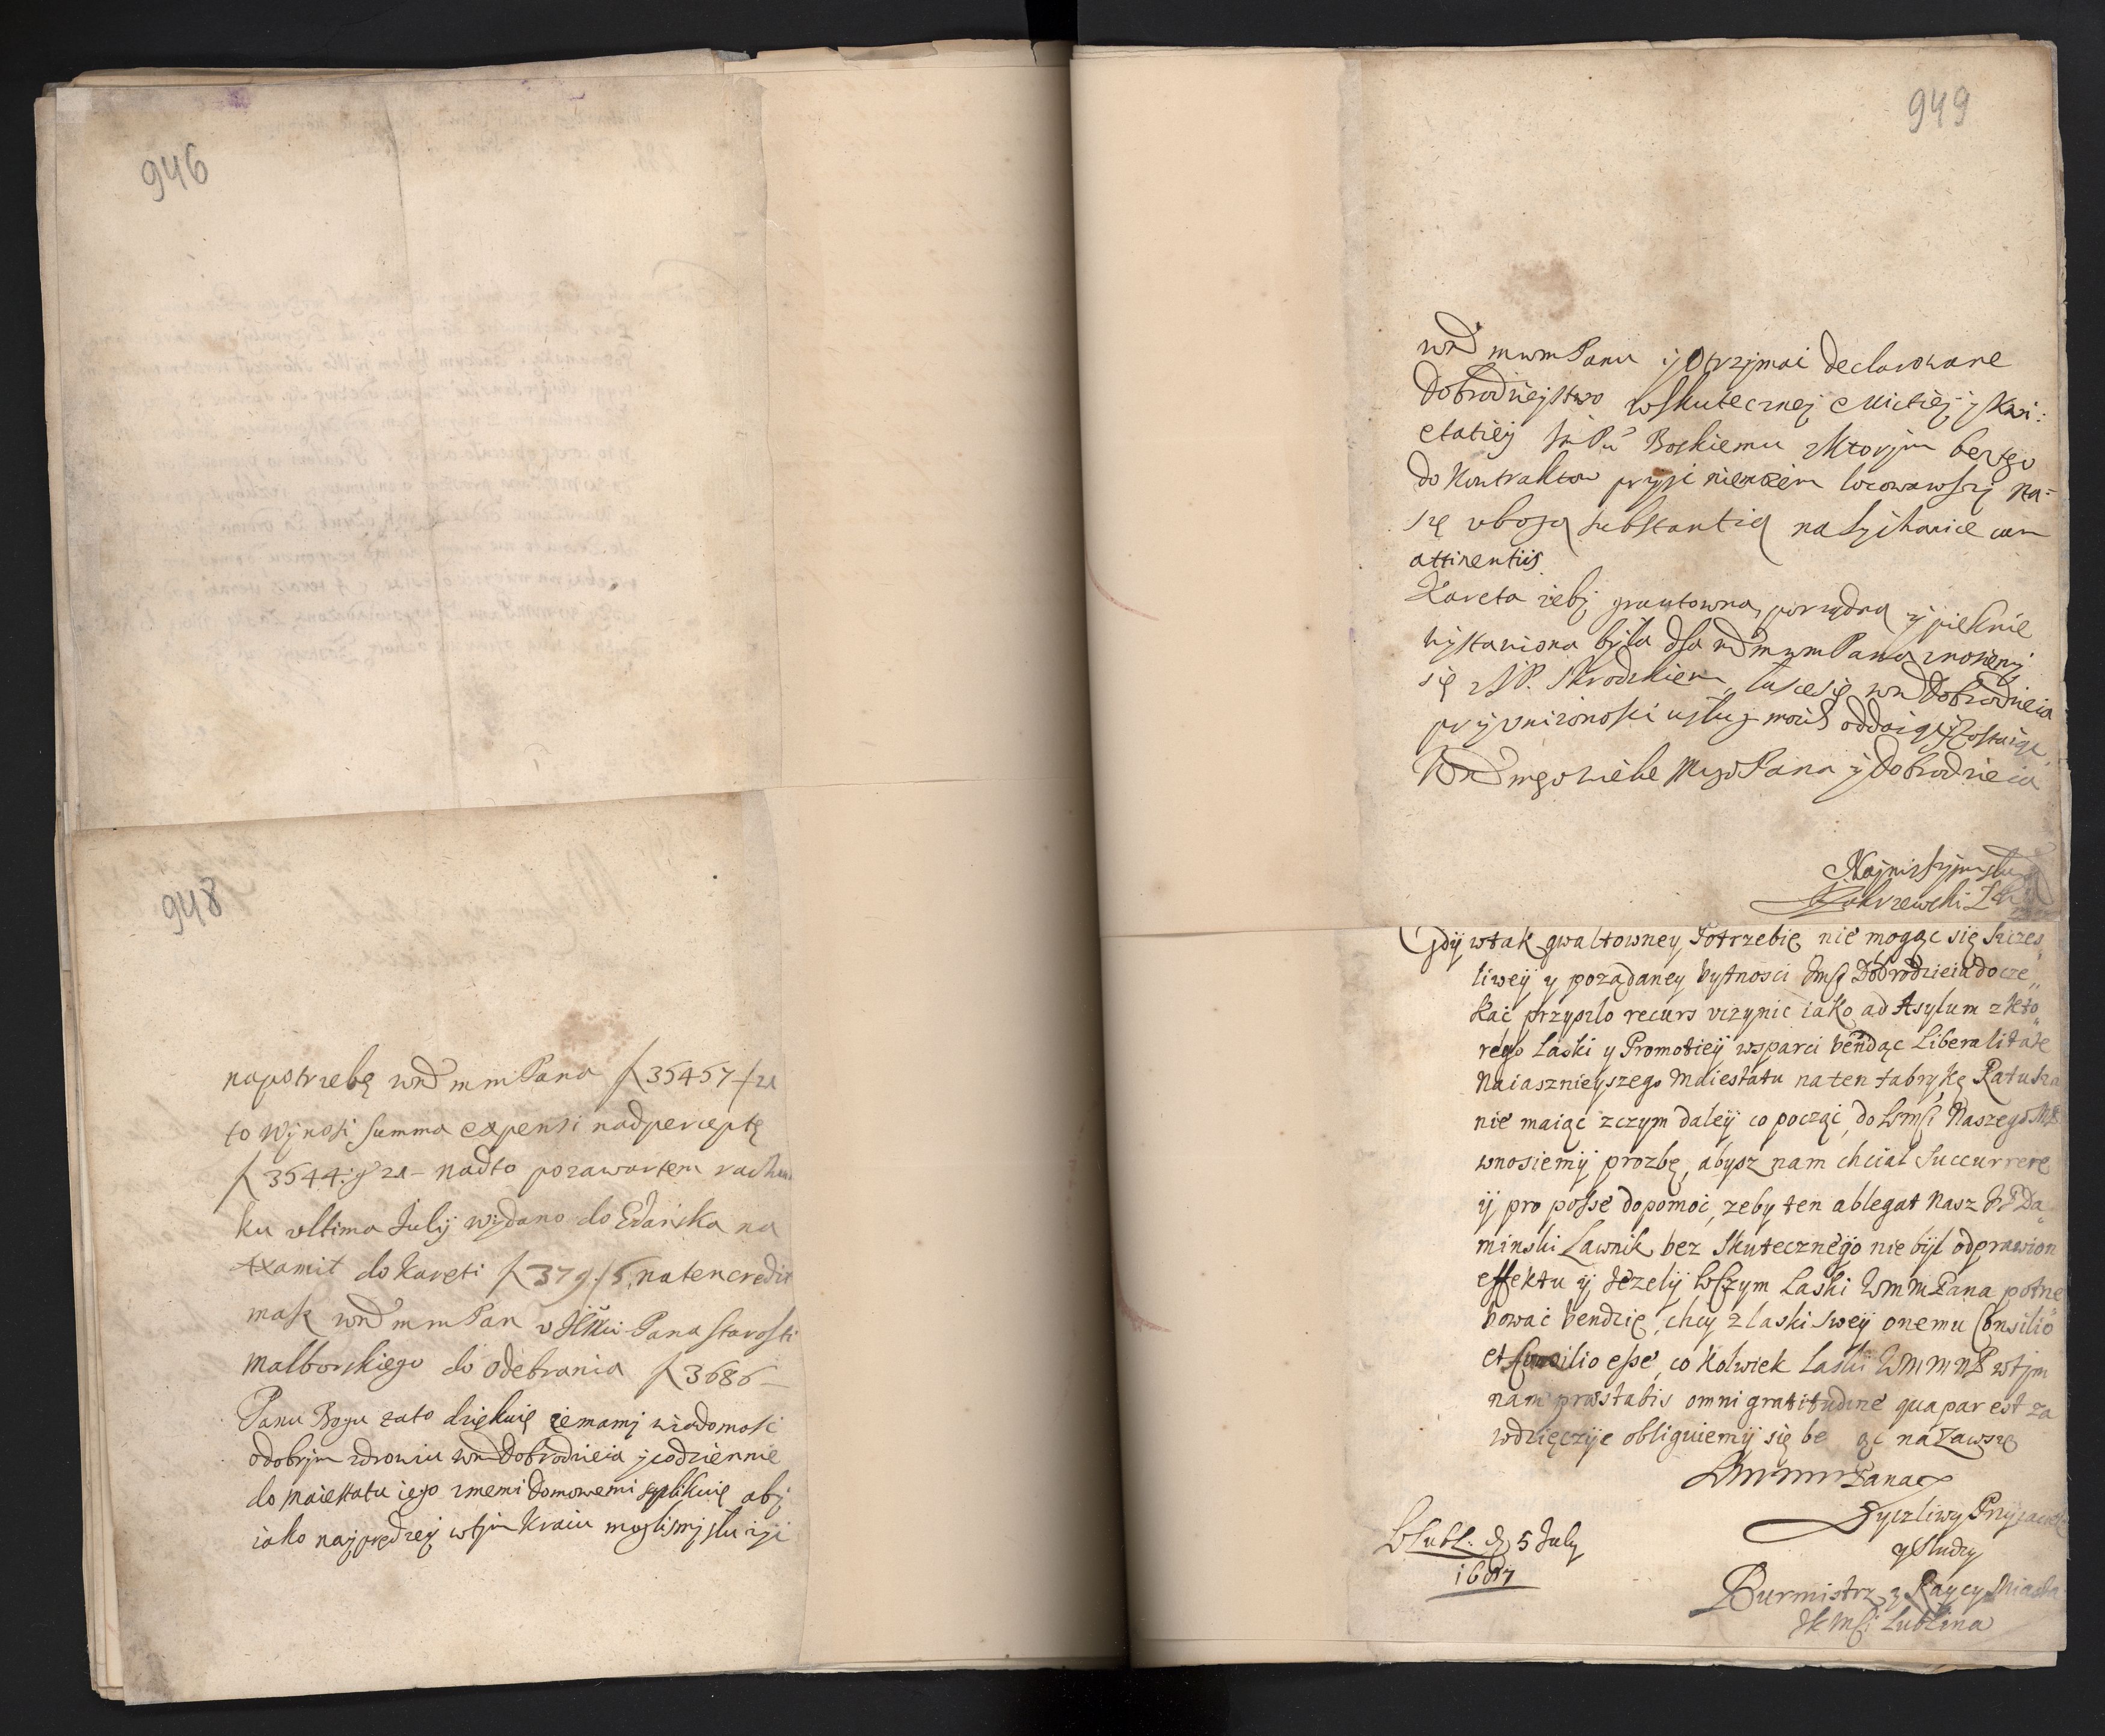 946
948
napotrzebę wmd m m Pana f 35457 f 21
to wynosi summa expensi nadperceptę
f 3544: g 21 – nadto pozawartem rachun
ku ultima July wydano do Gdańska na
axamit do Kareti f 379. f 5. natencredit
masz wmd m m Pan v Pana Starosti
Malborskiego do odebrania f 3686 –
Panu Bogu zato dziękuię zemamy wiadomość
odobrym zdrowiu wmd Dobrodzieia y codziennie
do Maiestatu iego zmemi Domowemi suplikuię aby
iako nayprędzey wtym Kraiu moglismy sluzyć
949
wmd mwm Panu y Otrzymać declarowane
Dobrodzieystwo wskuteczney y Kwi:
etatiey Boskiemu zktorym
do Kontraktow przy locowawszy na=
szę vbogą substantią na cum
attinentiis.
Kareta zeby gruntowna, porządna y pieknie
wystawiona była dla wmd mwm Pana
się z JP. Skrodzkiem, wmd Dobrodzieia
przy vnizonosci usług moich oddaiąc y zostaiąc
Wmd mego Mego Pana y Dobrodzieia
Nayniszszym sługą
Zakrzewski
Gdÿ wtak gwaltowney Potrzebie nie mogąc się szczes„
liweÿ y poządaney bytnosci Dobrodzieia docze„
kać przyszlo recurs vczynic iako ad Asylum z kto„
rego Laski y Promotieÿ wsparci bendąc Liberalitate
Naiasznieyszego Maiestatu na ten fabrykę Ratusza
nie maiąc zczym daleÿ co począć, do Wmsci Naszego
wnosiemÿ prozbę, abysz nam chciał Succurrere
ÿ pro posse dopomoć, zeby ten ablegat Nasz Da„
minski Lawnik bez Skutecznego nie był odprawion
effektu ÿ Jezelÿ wszym Laski WmMPana potrze
bować bendzie, chcy z laski sweÿ onemu Consilio
et esse, co Kolwiek Laski WMMMP wtym
nam præstabis omni gratitudine qua par est za
wdzięczÿc obliguiemÿ się ąc na Zawsze
Wmmm Pana
Zyczliwy Przyjaciele
y Sludzy
WLubl. d 5 July
1687
Burmistrz y Raycy Miasta
JKMsci Lublina